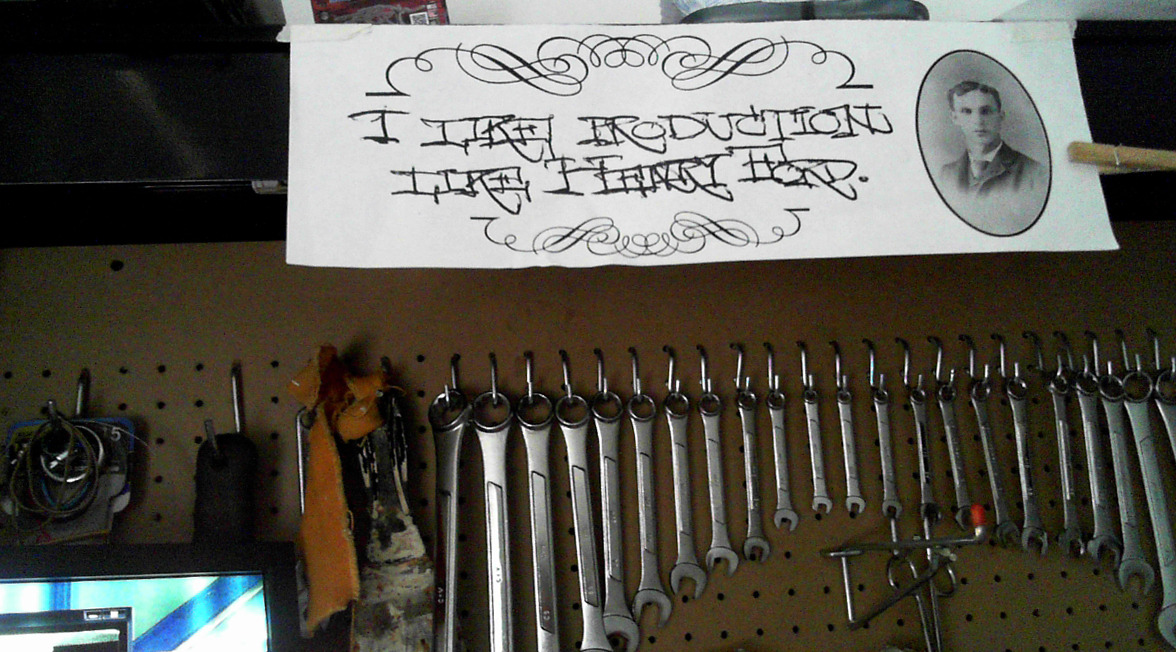 I LIKE PRODUCTION
LIKE HENRY FORD.